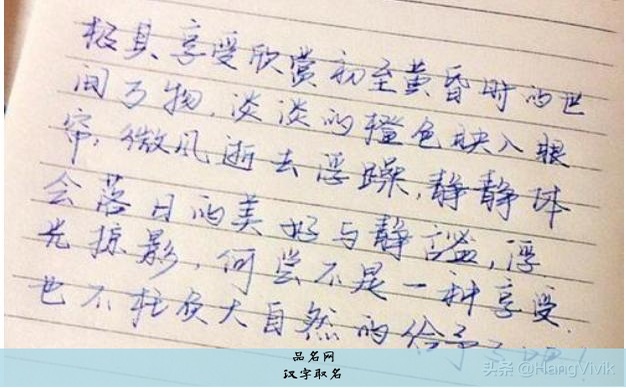 极具享受欣赏初至黄昏时的世
间万物,淡淡的橙色映入眼
帘,微风逝去浮躁,静静体
会落日的美好与静谧,浮
光掠影,何尝不是一种享受.
也不枉费大自然的给予
品名网
汉字取名
头条 @HangVivik